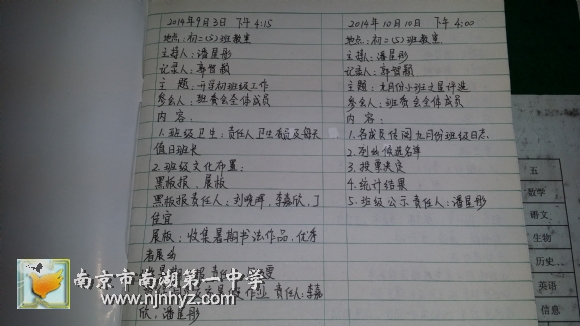 2014年9月3日 下午4:15
地点:初二(5)班教室
主持人:潘星彤
记录人:郭智颖
主 题:开学初班级工作
参会人:班委会全体成员
内 容:
1.班级卫生:责任人卫生委员及每天
值日班长
2.班级文化布置:
黑板报、展板
黑板报责任人:刘晓晖、李嘉欣、丁
佳宜
展板:收集暑期书法作品,优秀
者展出
责任人:李嘉
欣、潘星彤
2014年10月10日 下午4:00
地点:初二(5)班教室
主持人:潘星彤
记录人:郭智颖
主题:九月份小班之星评选
参会人:班委会全体成员
内容:
1.各成员传阅九月份班级日志
2.列出候选名单
3.投票决定
4.统计结果
5.班级公示责任人:潘星彤
五
数学
语文
生物
历史
英语
信息
南京市南湖第一中学
www.njnhyz.com